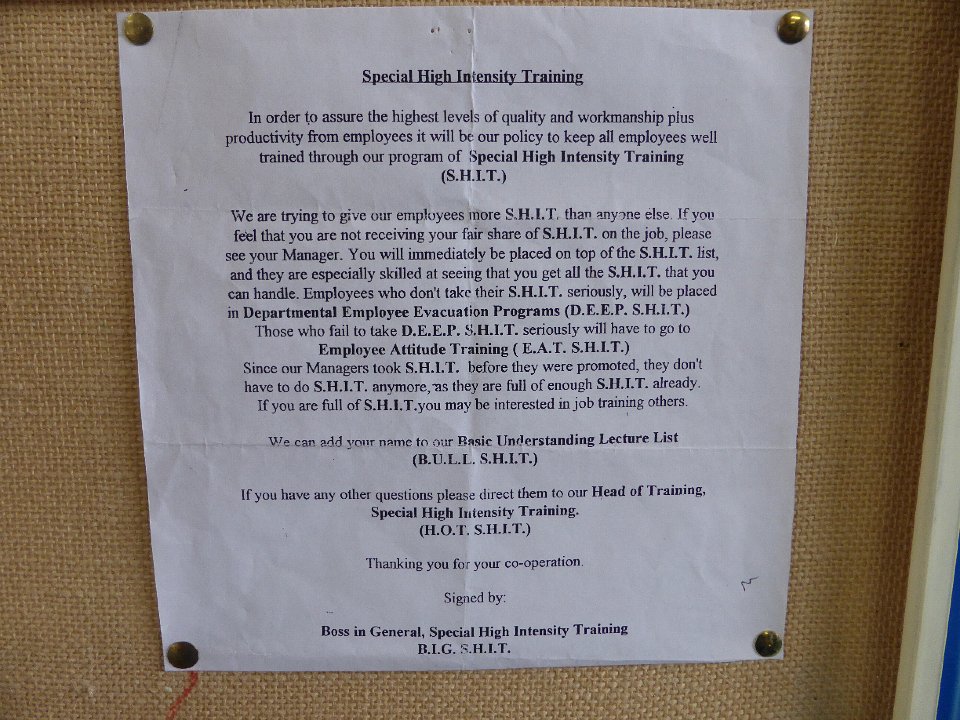 Special High Intensity Training
In order to assure the highest levels of quality and workmanship plus
productivity from employees it will be our policy to keep all employees well
trained through our program of Special High Intensity Training
(S.H.I.T.)
We are trying to give our employees more S.H.I.T. than anyone else. If you
feel that you are not receiving your fair share of S.H.I.T. on the job, please
see your Manager. You will immediately be placed on top of the S.H.I.T. list,
and they are especially skilled at seeing that you get all the S.H.I.T. that you
can handle. Employees who don't take their S.H.I.T. seriously, will be placed
in Departmental Employee Evacuation Programs (D.E.E.P. S.H.I.T.)
Those who fail to take D.E.E.P. S.H.I.T. seriously will have to go to
Employee Attitude Training ( E.A.T. S.H.I.T.)
Since our Managers took S.H.I.T. before they were promoted, they don't
have to do S.H.I.T. anymore, as they are full of enough S.H.I.T. already.
If you are full of S.H.I.T.you may be interested in job training others.
We can add your name to our Basic Understanding Lecture List
(B.U.L.L. S.H.I.T.)
If you have any other questions please direct them to our Head of Training,
Special High Intensity Training.
(H.O.T. S.H.I.T.)
Thanking you for your co-operation.
Signed by:
Boss in General, Special High Intensity Training
B.I.G. S.H.I.T.